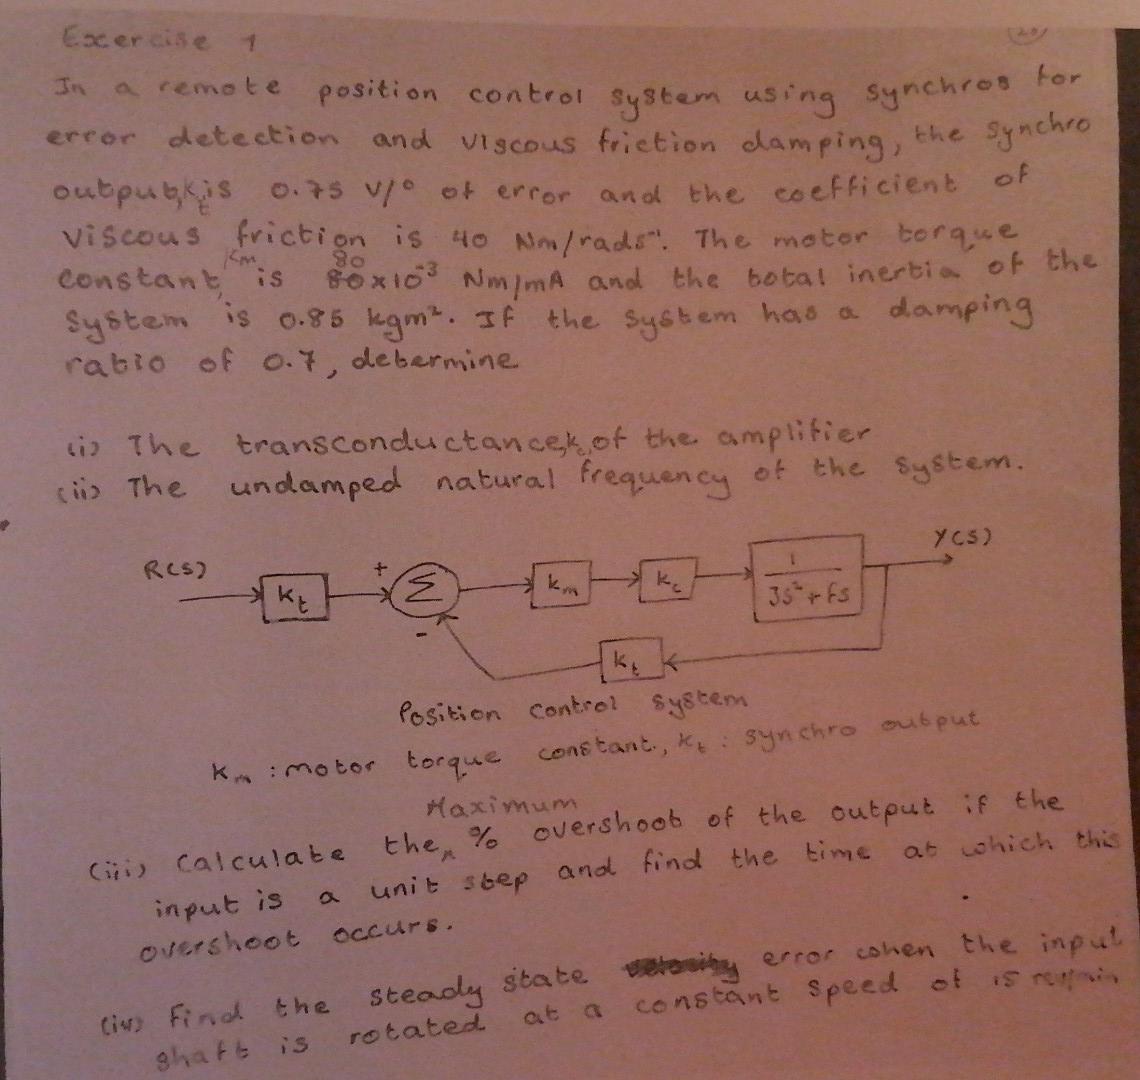 Exercise 1
In a remote position control system using synchros for
error detection and viscous friction damping, the synchro
output, kt is 0.75 V/° of error and the coefficient of
viscous friction is 40 Nm/rads⁻¹. The motor torque
km 80
constant, is 80x10⁻³ Nm/mA and the total inertia of the
system is 0.85 kgm². If the system has a damping
ratio of 0.7, determine
(i) The transconductance, kc of the amplifier
(ii) The undamped natural frequency of the system.
R(s) kt + Σ - km kc 1 Y(s)
Js² + fs
kt
Position control system
km : motor torque constant, kt : synchro output
Maximum
(iii) Calculate the % overshoot of the output if the
input is a unit step and find the time at which this
overshoot occurs.
(iv) Find the steady state error when the input
shaft is rotated at a constant speed of 15 rev/min